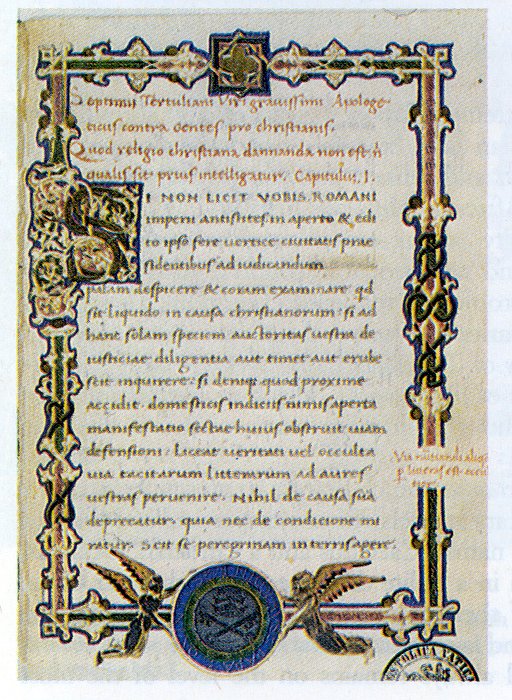 Septimii Tertuliani Viri gravissimi Apologe-
ticus contra Gentes pro christianis.
Quod religio christiana damnanda non est nˉ
qualis sit prius intelligatur. Capitulū. I.
I NON LICET VOBIS ROMANI
imperii antistites in aperto & edi
to ipso fere vertice civitatis prae
sidentibus ad iudicandum
palam despicere & coram examinare qd
sit liquido in causa christianorum: si ad
hanc solam speciem auctoritas vestra de
iusticiae diligentia aut timet aut erube
scit inquirere: si deniq quod proxime
accidit. domesticis indiciis nimis aperta
manifestatio sectae huius obstruit viam
defensioni. Liceat veritati vel occulta
via tacitarum litterarum ad aures
vestras pervenire. Nihil de causa sua
deprecatur. quia nec de condicione mi
ratur. Scit se peregrinam in terris agere.
p litteras est
STOLICA VATICA